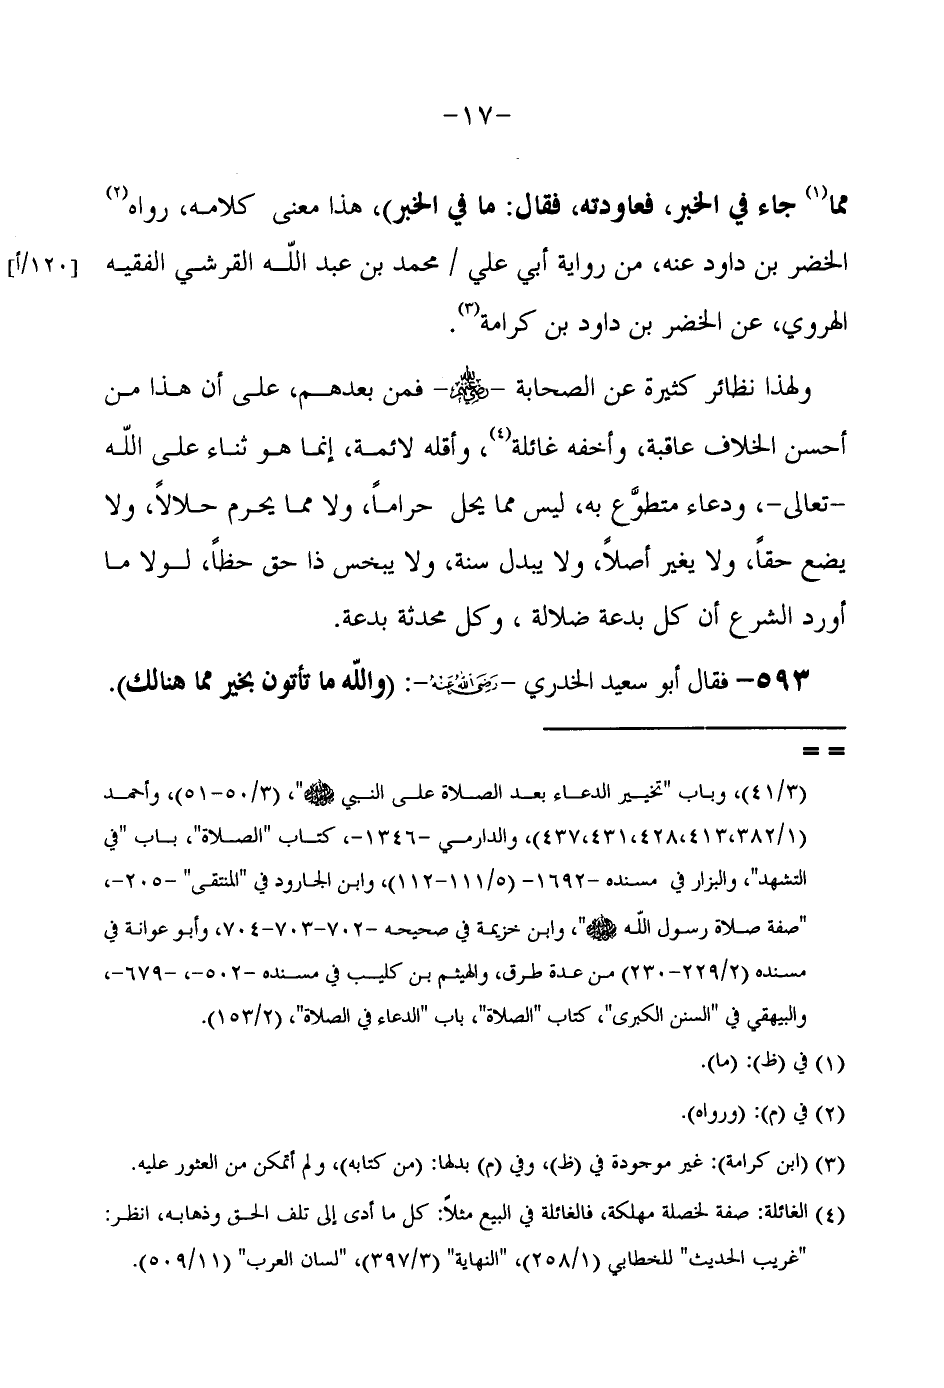 -١٧-
مما(١) جاء في الخبر، فعاودته، فقال: ما في الخبر)، هذا معنى كلامه، رواه(٢)
الخضر بن داود عنه، من رواية أبي علي / محمد بن عبد اللّه القرشي الفقيه [١٢٠/أ]
الهروي، عن الخضر بن داود بن كرامة(٣).
ولهذا نظائر كثيرة عن الصحابة -رضي الله عنهم- فمن بعدهم، على أن هذا من
أحسن الخلاف عاقبة، وأخفه غائلة(٤)، وأقله لائمة، إنما هو ثناء على اللّه
-تعالى-، ودعاء متطوَّع به، ليس مما يحل حراماً، ولا مما يحرم حلالاً، ولا
يضع حقاً، ولا يغير أصلاً، ولا يبدل سنة، ولا يبخس ذا حق حظاً، لولا ما
أورد الشرع أن كل بدعة ضلالة ، وكل محدثة بدعة.
٥٩٣- فقال أبو سعيد الخدري -رَضِيَ اللهُ عَنْهُ-: (واللّه ما تأتون بخير مما هنالك).
= =
(٤١/٣)، وباب "تخيير الدعاء بعد الصلاة على النبي ﷺ"، (٥٠/٣-٥١)، وأحمد
(٣٨٢/١،٤١٣،٤٢٨،٤٣١،٤٣٧)، والدارمي -١٣٤٦-، كتاب "الصلاة"، باب "في
التشهد"، والبزار في مسنده -١٦٩٢- (١١١/٥-١١٢)، وابن الجارود في "المنتقى" -٢٠٥-،
"صفة صلاة رسول اللّه ﷺ"، وابن خزيمة في صحيحه -٧٠٢-٧٠٣-٧٠٤، وأبو عوانة في
مسنده (٢٢٩/٢-٢٣٠) من عدة طرق، والهيثم بن كليب في مسنده -٥٠٢-، -٦٧٩-،
والبيهقي في "السنن الكبرى"، كتاب "الصلاة"، باب "الدعاء في الصلاة"، (١٥٣/٢).
(١) في (ظ): (ما).
(٢) في (م): (ورواه).
(٣) (ابن كرامة): غير موجودة في (ظ)، وفي (م) بدلها: (من كتابه)، ولم أتمكن من العثور عليه.
(٤) الغائلة: صفة لخصلة مهلكة، فالغائلة في البيع مثلاً: كل ما أدى إلى تلف الحق وذهابه، انظر:
"غريب الحديث" للخطابي (٢٥٨/١)، "النهاية" (٣٩٧/٣)، "لسان العرب" (٥٠٩/١١).